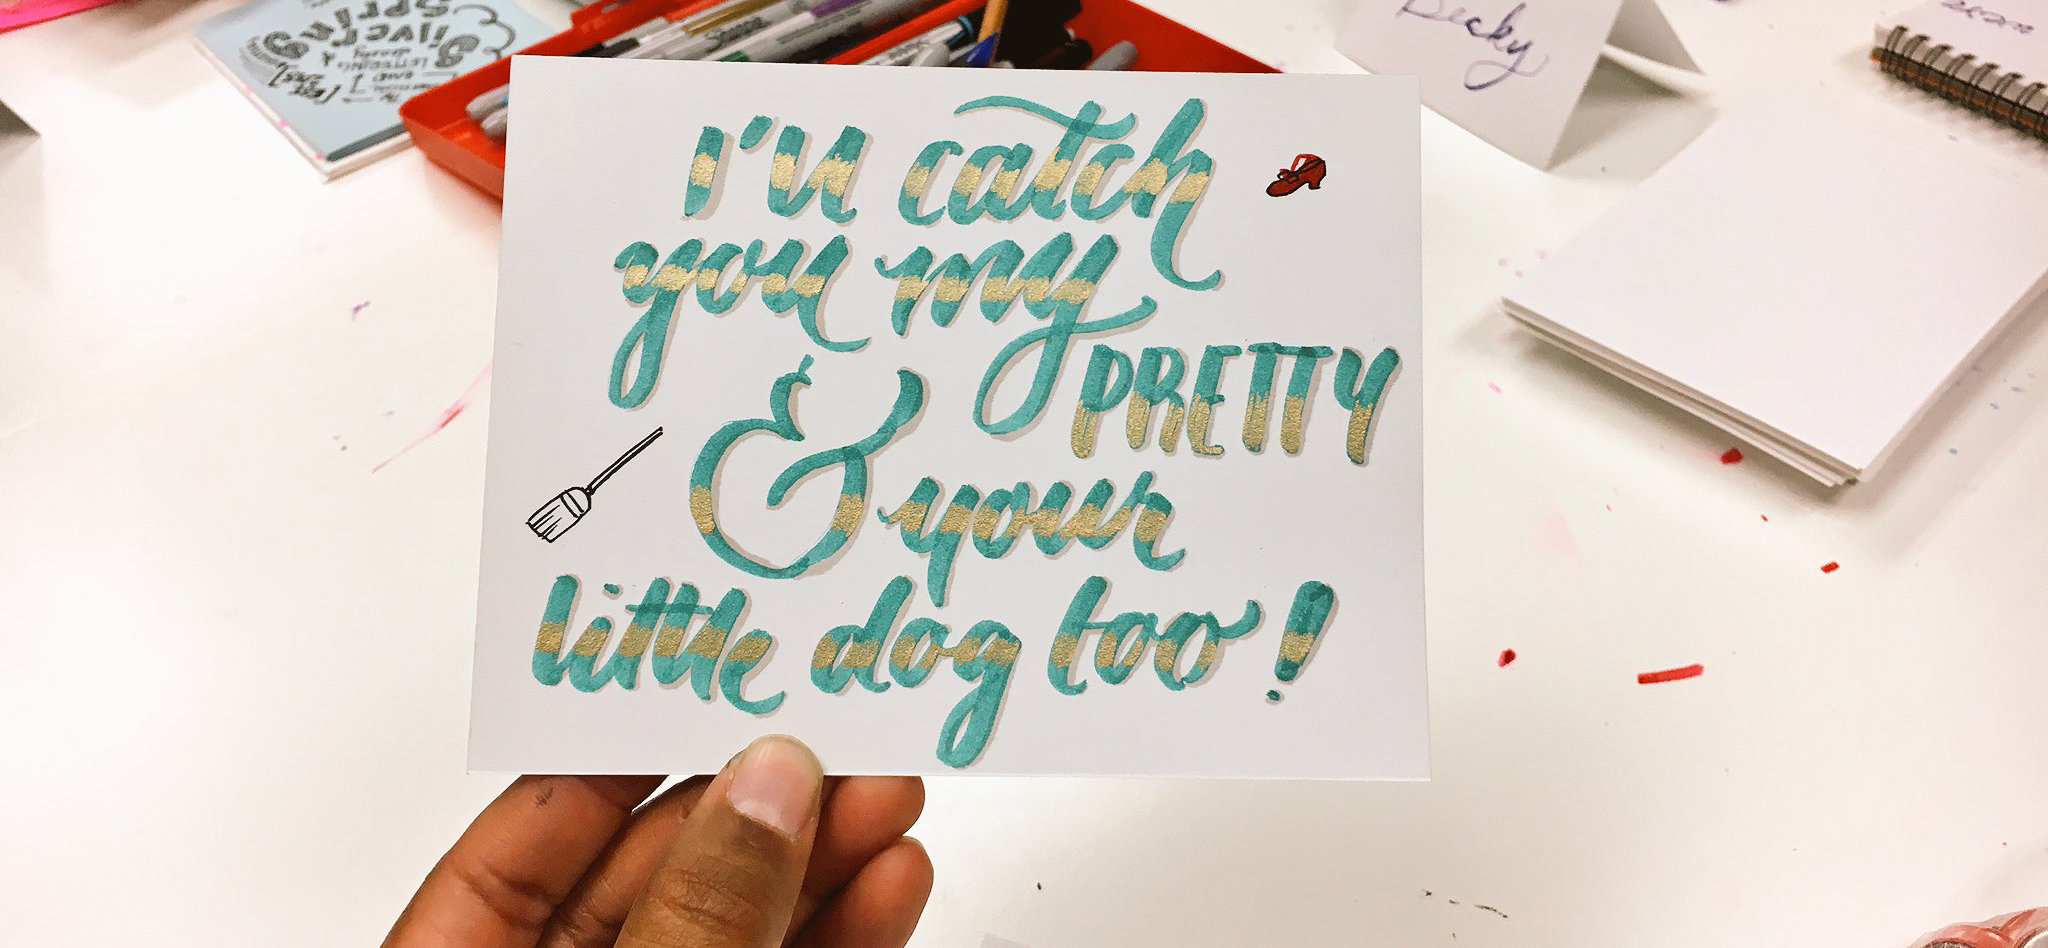 I'll catch
you my
PRETTY
& your
little dog too!
Becky
Sharpie